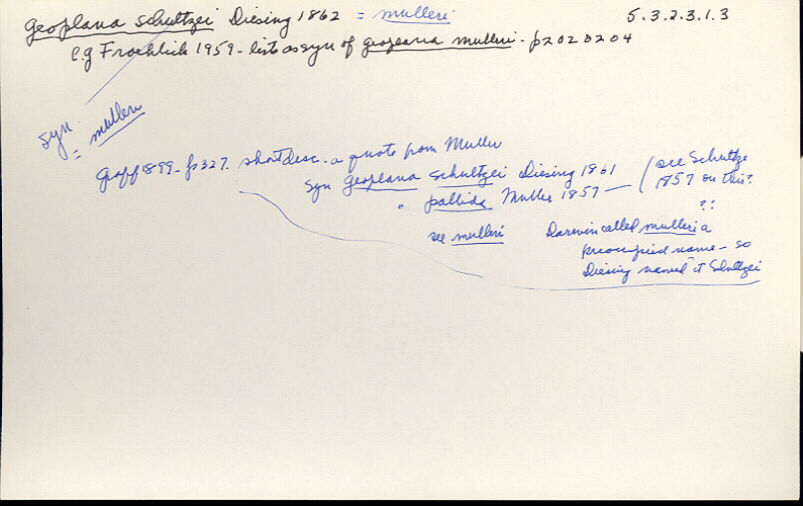 Geoplana schultzei Diesing 1862 = mulleri 5.3.2.3.1.3
E.g Froehlich 1959 - lists as syn of geoplana mulleri - p202 & 204
syn = mulleri
Graff 1899 - p327. short desc. - a quote from Muller
syn geoplana schultzei Diesing 1861 (see Schultze
" pallida Muller 1857 — 1857 on this?
??
see mulleri Darwin called mulleri a
preoccupied name - so
Diesing named it Schultzei